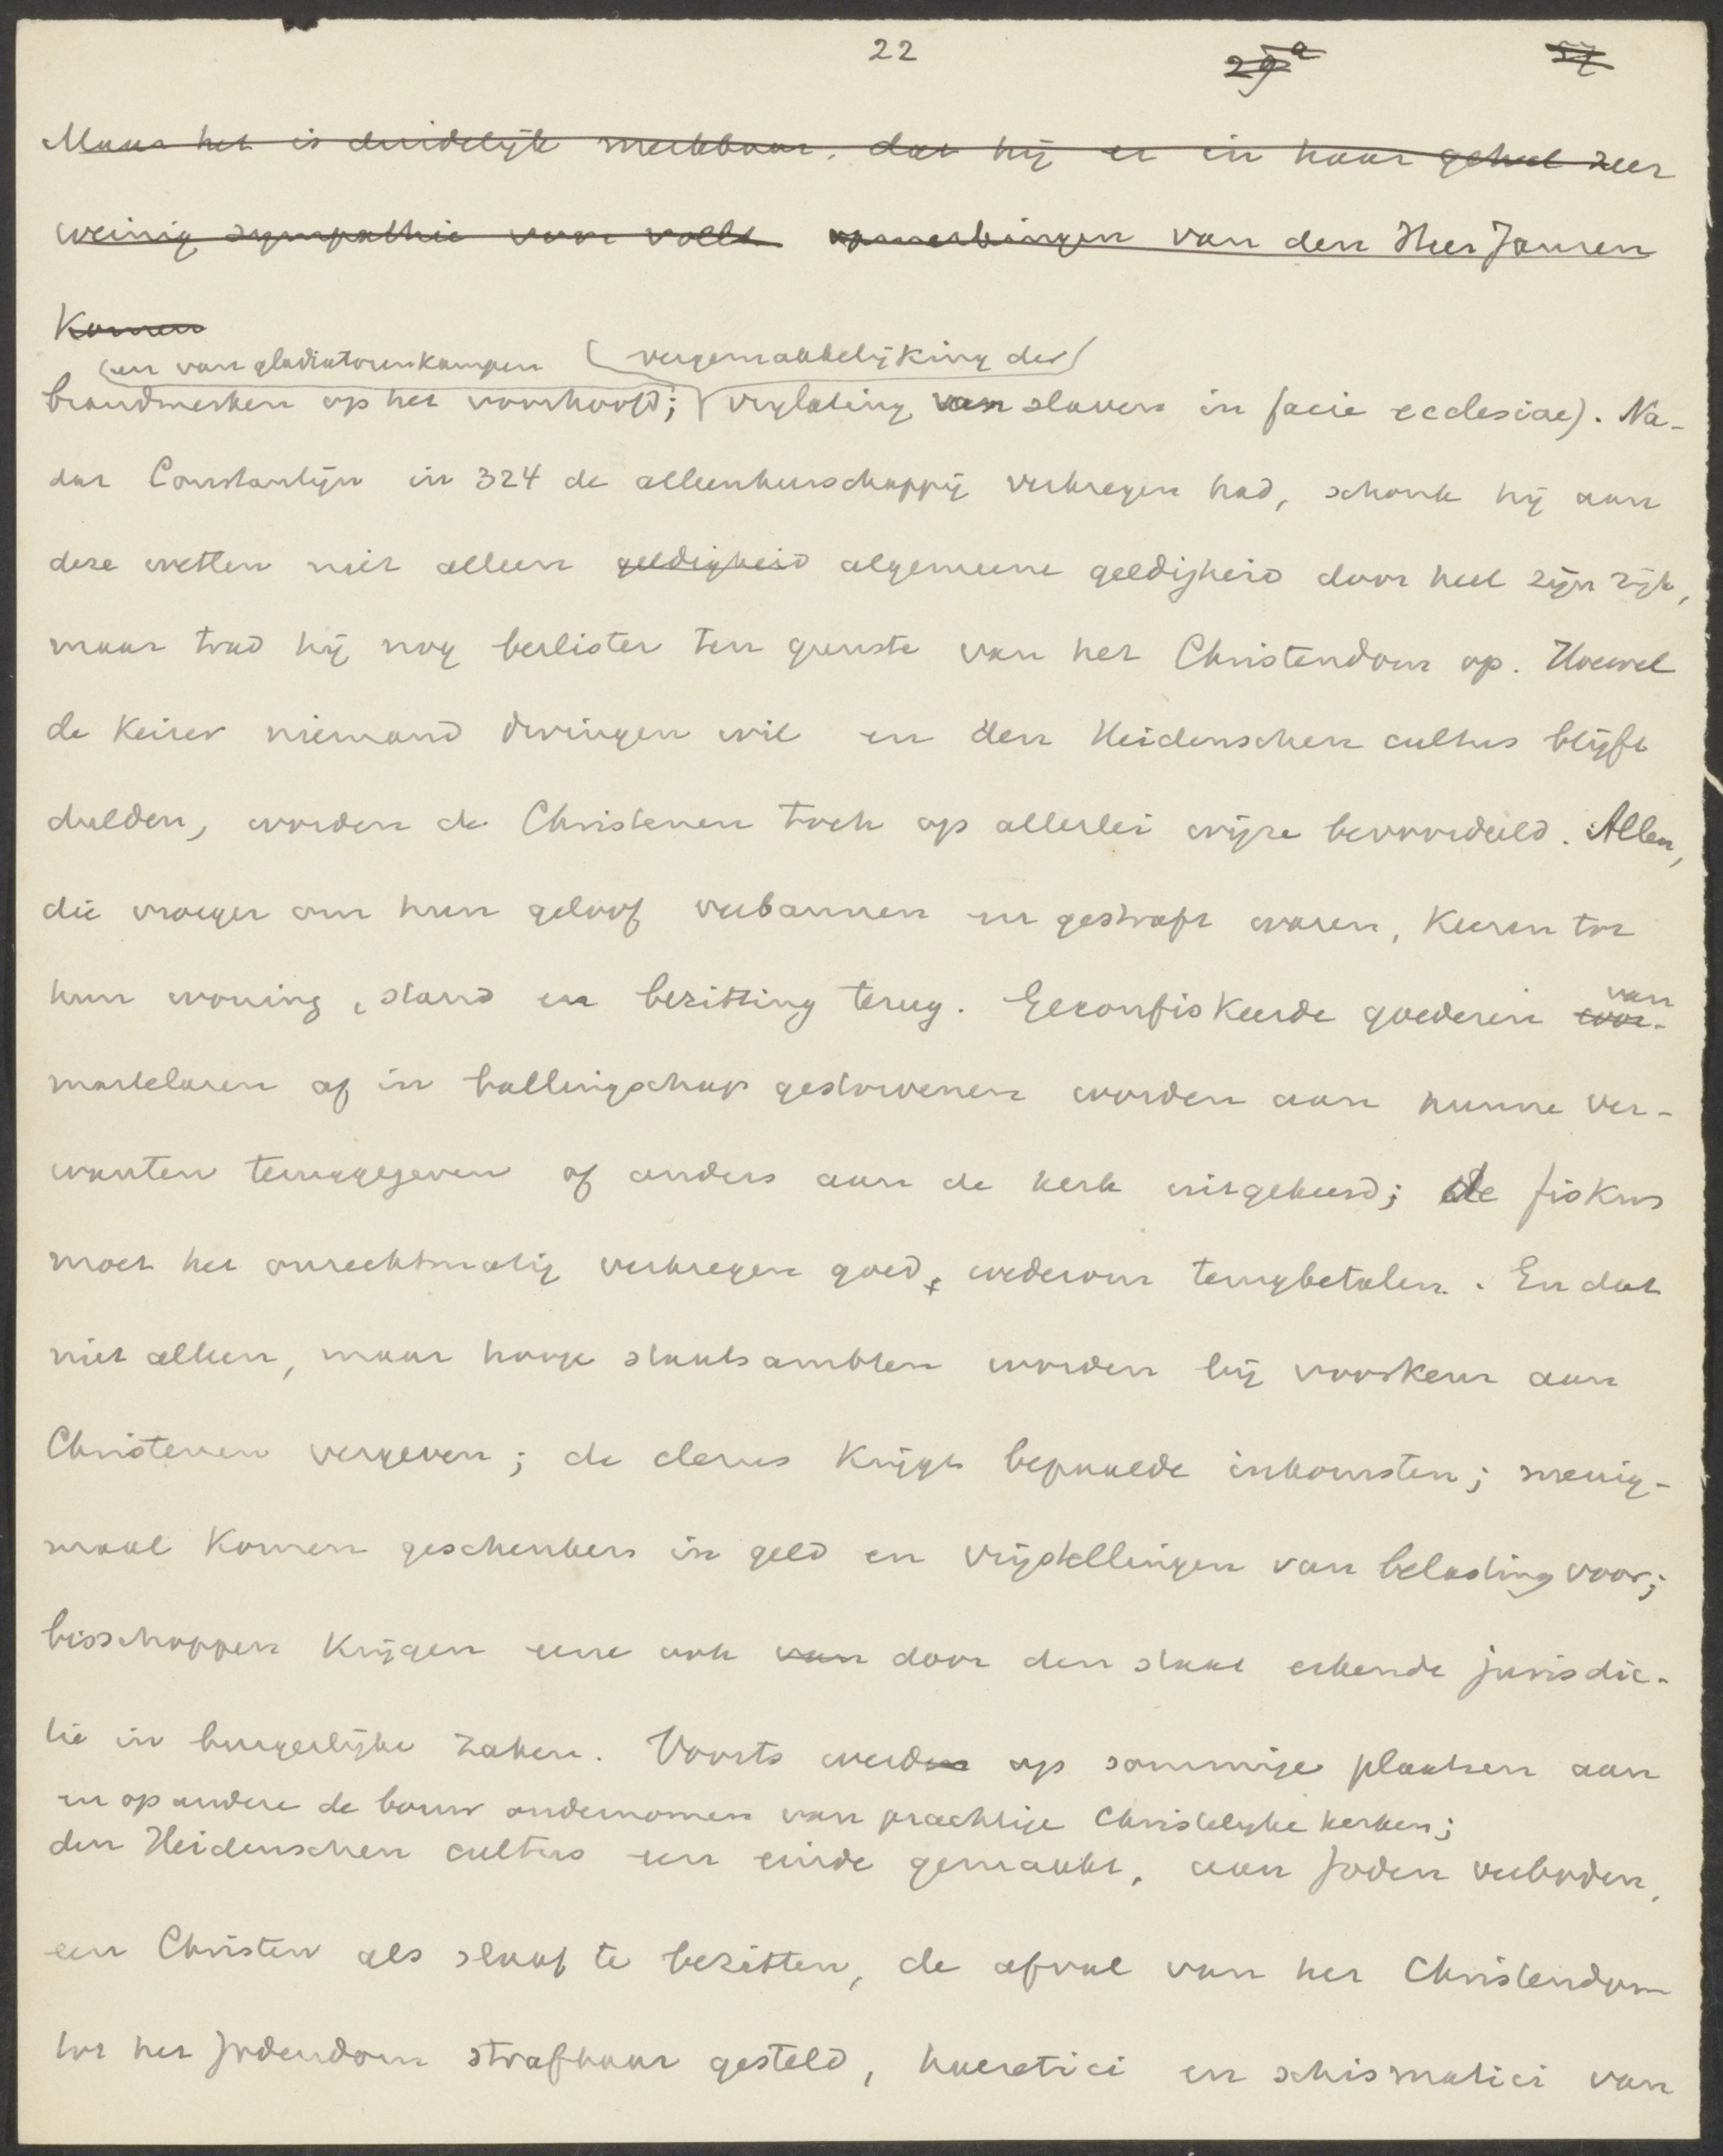 22 29a 57
Maar het is duidelijk merkbaar, dat hij er in haar geheel zeer
weinig sympathie voor voelt opmerkingen van den Heer Jansen
Komen
(en van gladiatorenkampen (vergemakkelijking der)
brandmerken op het voorhoofd; vrylating van slaven in facie ecclesiae). Na-
dat Constantijn in 324 de alleenheerschappij verkregen had, schonk hij aan
deze wetten niet alleen geldigheid algemeene geldigheid door heel zijn rijk,
maar trad hij nog beslister ten gunste van het Christendom op. Hoewel
de Keizer niemand dwingen wil en den Heidenschen cultus blijft
dulden, worden de Christenen toch op allerlei wijze bevoordeeld. Allen,
die vroeger om hun geloof verbannen en gestraft waren, Keeren tot
hun woning, stand en bezitting terug. Gekonfiskeerde goederen van
martelaren of in ballingschap gestorvenen worden aan hunne ver-
wanten teruggegeven of anders aan de kerk uitgekeerd; de fiskus
moet het onrechtmatig verkregen goed, wederom terugbetalen. En dat
niet alleen, maar hooge staatsambten worden bij voorkeur aan
Christenen vergeven; de clerus Krijgt bepaalde inkomsten; menig-
maal Komen geschenken in geld en vrijstellingen van belasting voor;
bisschoppen Krijgen eene ook van door den staat erkende jurisdic-
tie in burgerlijke zaken. Voorts werden op sommige plaatsen aan
en op andere de bouw ondernomen van prachtige Christelyke kerken;
den Heidenschen cultus een einde gemaakt, aan Joden verboden,
een Christen als slaaf te bezitten, de afval van het Christendom
tot het Jodendom strafbaar gesteld, haeretici en schismatici van